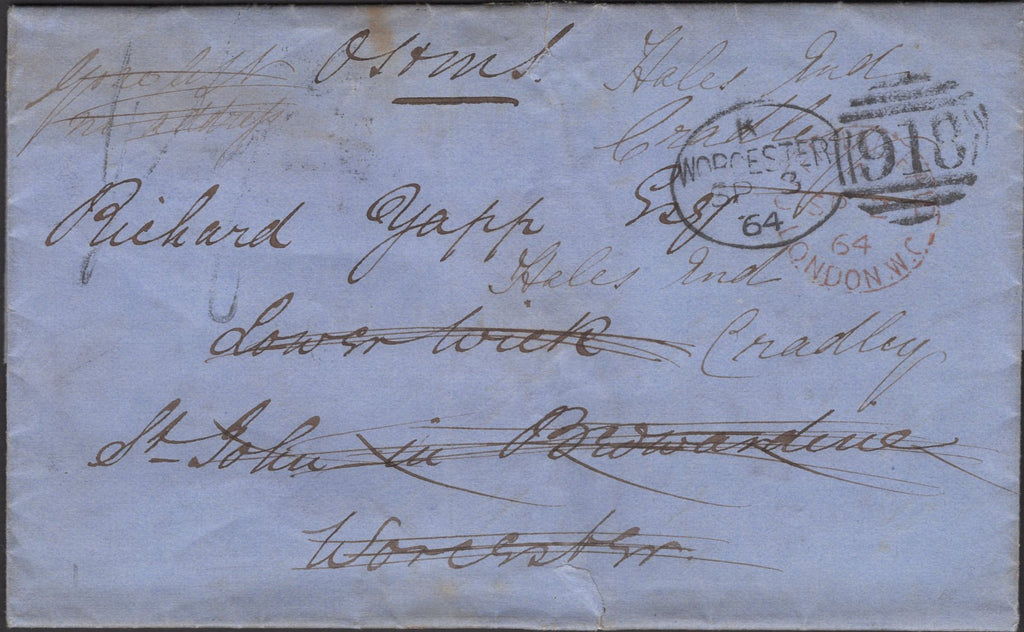 OHMS
Hales End
Cradley
no address
Richard Yapp Esq
Hales End
Lower Wick
Cradley
St John in Bedwardine
Worcester
K
WORCESTER
SP 3
64
918
64
LONDON.W.C.